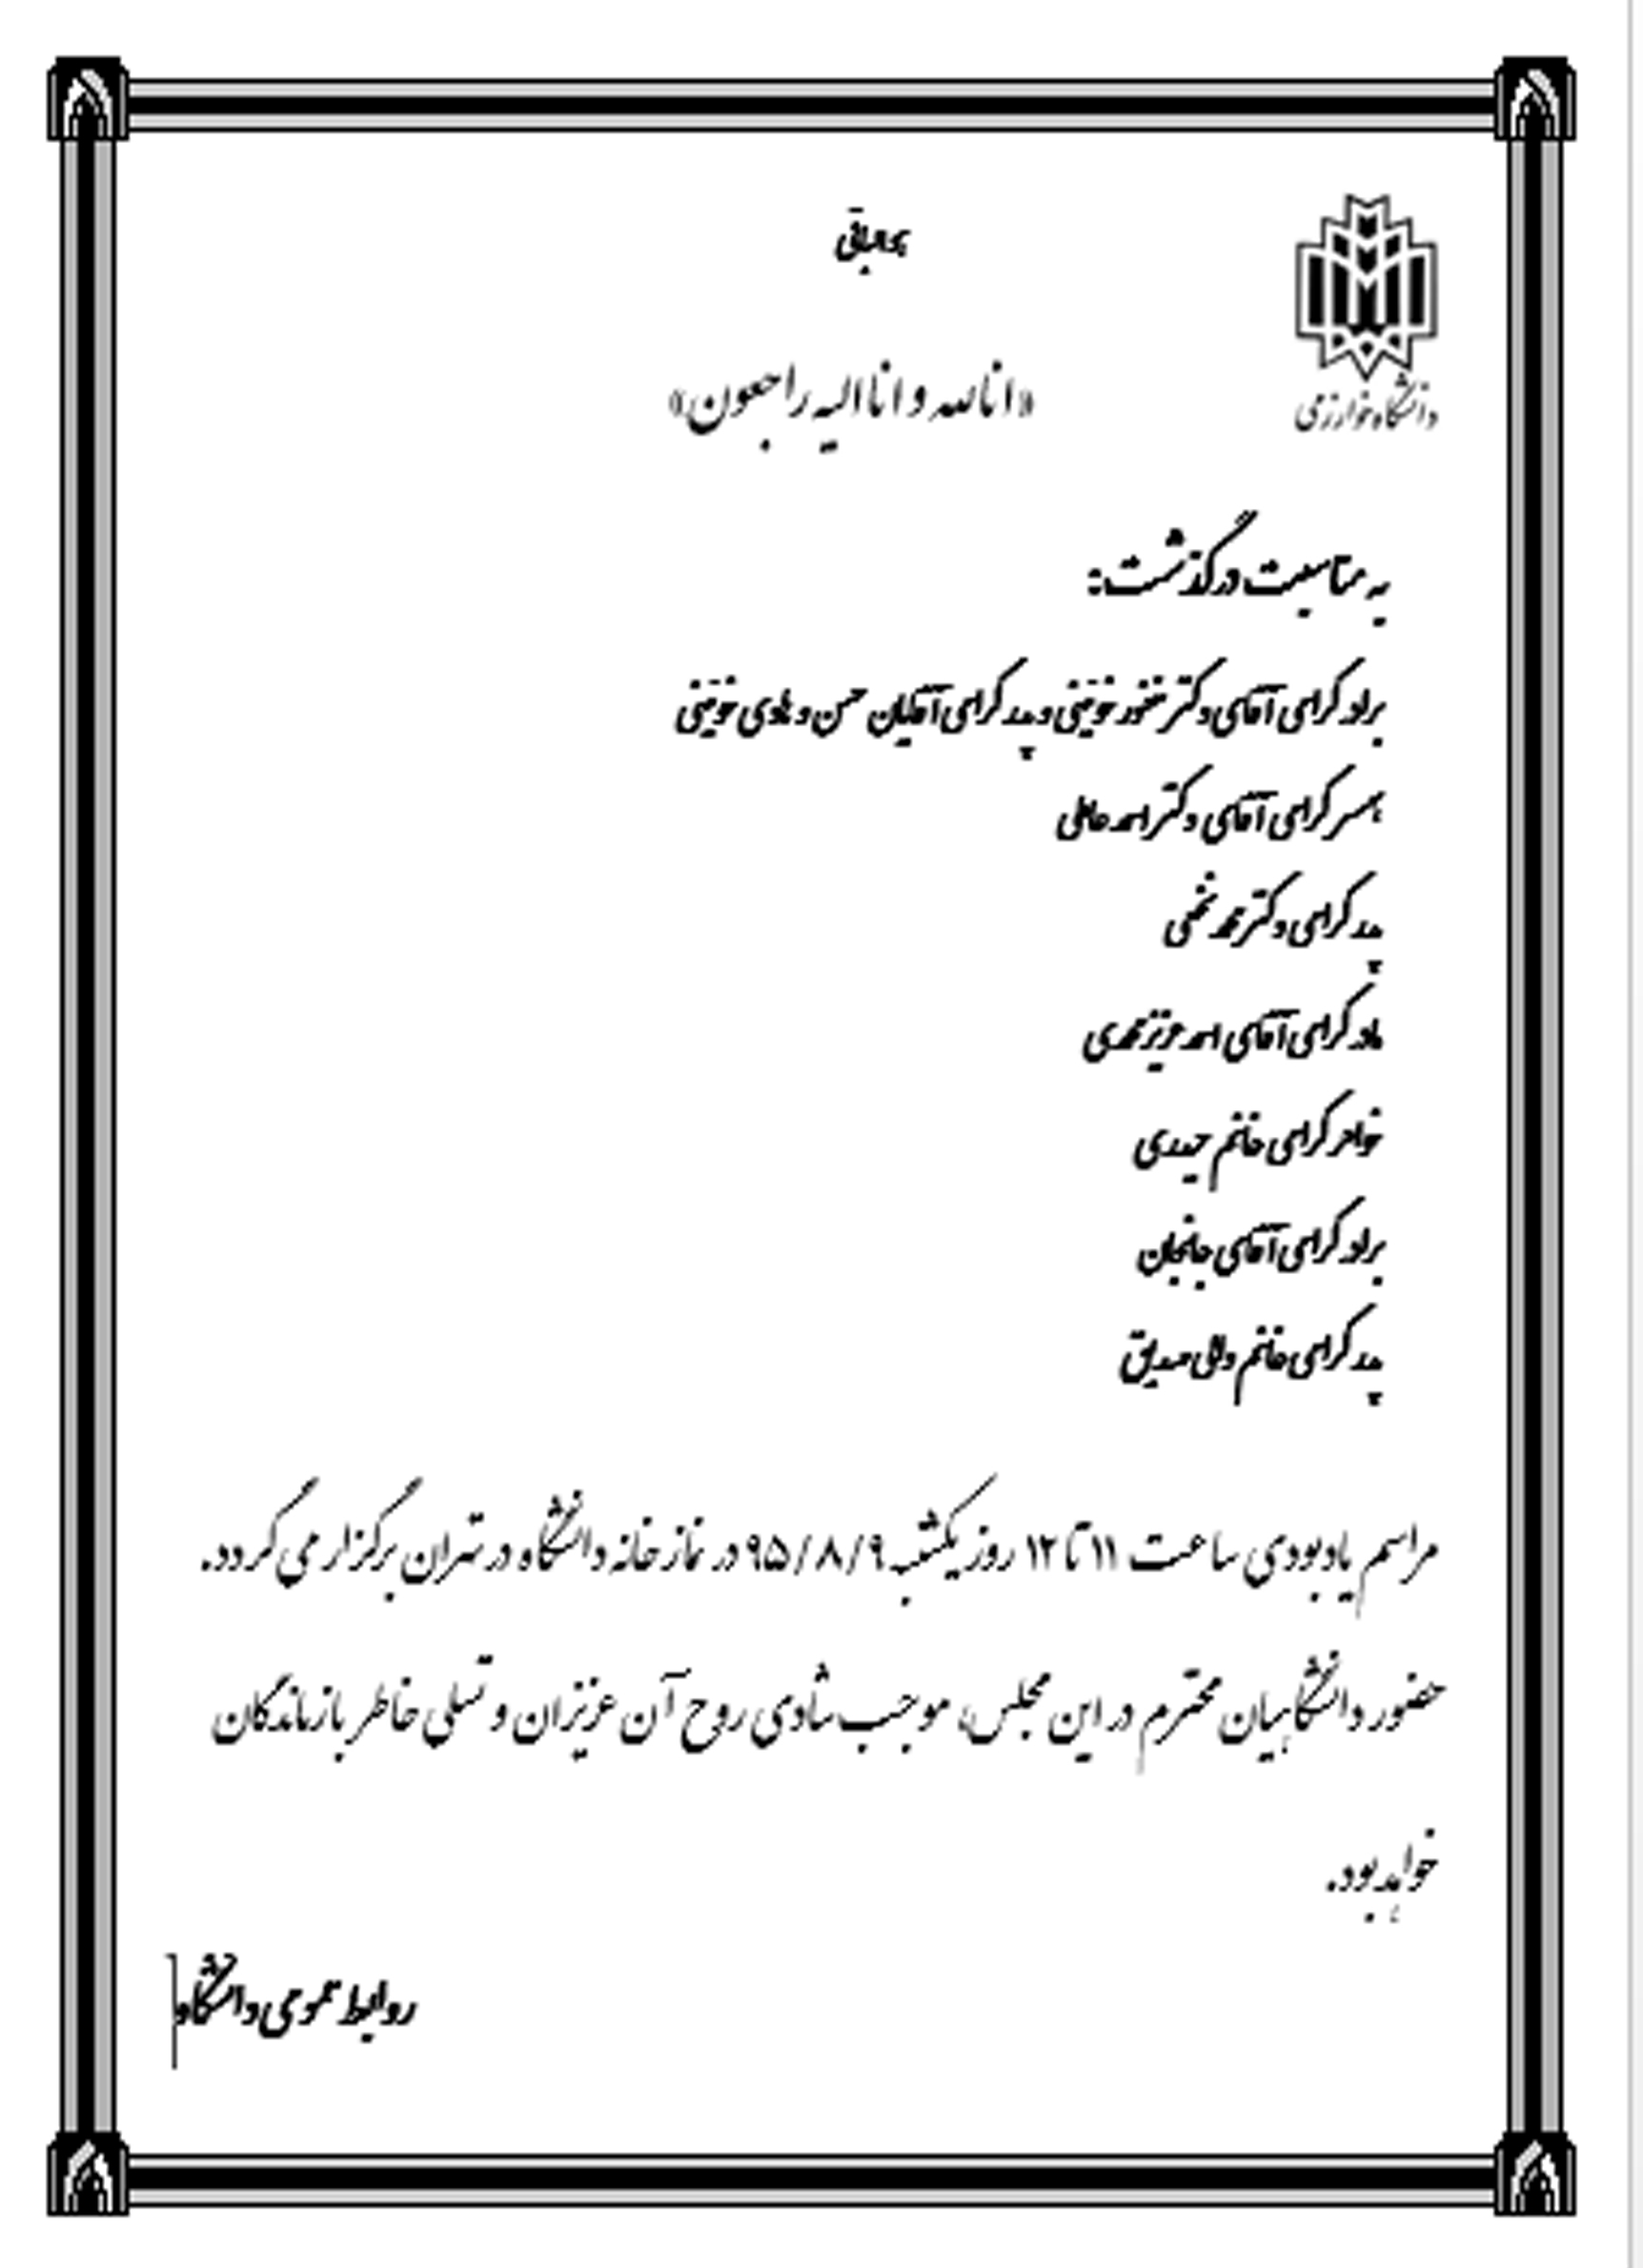 هوالباقی
دانشگاه خوارزمی
«انا لله و انا الیه راجعون»
به مناسبت درگذشت:
برادر گرامی آقای دکتر غفور خوئینی و پدر گرامی آقایان حسن و هادی خوئینی
همسر گرامی آقای دکتر احمد عاملی
پدر گرامی دکتر محمد نخعی
مادر گرامی آقای احمد عزیز محمدی
خواهر گرامی خانم حیدری
برادر گرامی آقای جانجان
پدر گرامی خانم صدیق
مراسم یادبودی ساعت ۱۱ تا ۱۲ روز یکشنبه ۹۵/۸/۹ در نمازخانه دانشگاه در تهران برگزار می گردد.
حضور دانشگاهیان محترم در این مجلس، موجب شادی روح آن عزیزان و تسلی خاطر بازماندگان
خواهد بود.
روابط عمومی دانشگاه